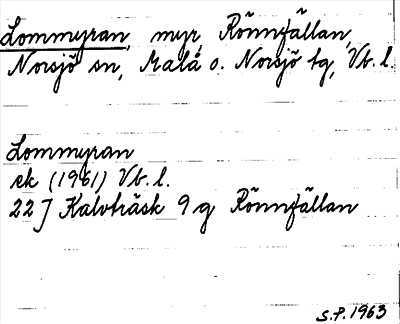 Lommyran, myr, Rönnfällan,
Norsjö sn, Malå o. Norsjö tg, Vb. l.
Lommyran
ek (1961) Vb. l.
22J Kalvträsk 9 g Rönnfällan
S.P. 1963